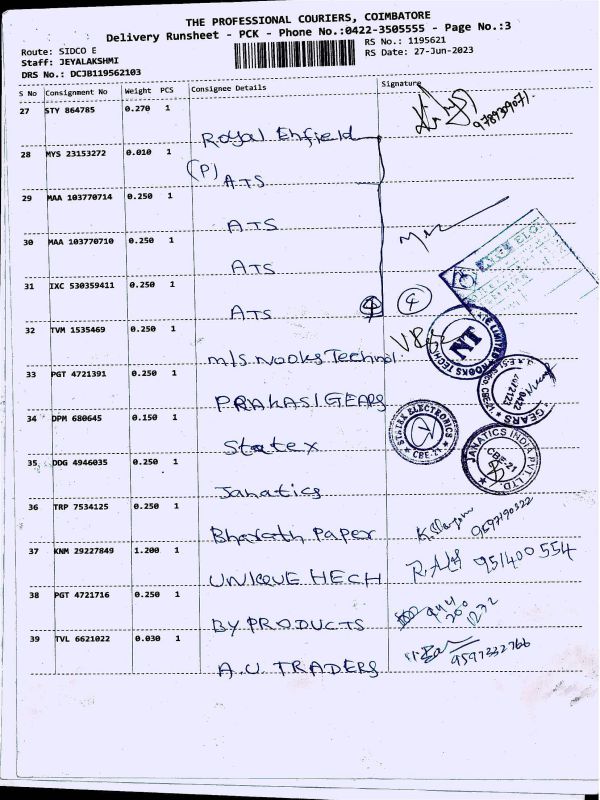 THE PROFESSIONAL COURIERS, COIMBATORE
Delivery Runsheet - PCK - Phone No.:0422-3505555 - Page No.:3
Route: SIDCO E RS No.: 1195621
Staff: JEYALAKSHMI RS Date: 27-Jun-2023
DRS No.: DCJB119562103
S No Consignment No Weight PCS Consignee Details Signature
27 STY 864785 0.270 1
9789309071
Royal Enfield
28 MYS 23153272 0.010 1
(P) ATS
29 MAA 103770714 0.250 1
ATS
30 MAA 103770710 0.250 1
ATS
31 IXC 530359411 0.250 1
ATS 4 4
32 TVM 1535469 0.250 1
M/S Nooks Technol
NT
33 PGT 4721391 0.250 1
PRAKASI GEARS
GEARS
34 DPM 680645 0.150 1
Statex
STATEX ELECTRONICS
CBE-21
35 DDG 4946035 0.250 1
Janatics
JANATICS INDIA PVT. LTD.
CBE-21
36 TRP 7534125 0.250 1
Bharath Paper
9597190322
37 KNM 29227849 1.200 1
UNIQUE HECH 951400554
38 PGT 4721716 0.250 1
BY PRODUCTS
944
200
1272
39 TVL 6621022 0.030 1
A.U. TRADERS
9597332766